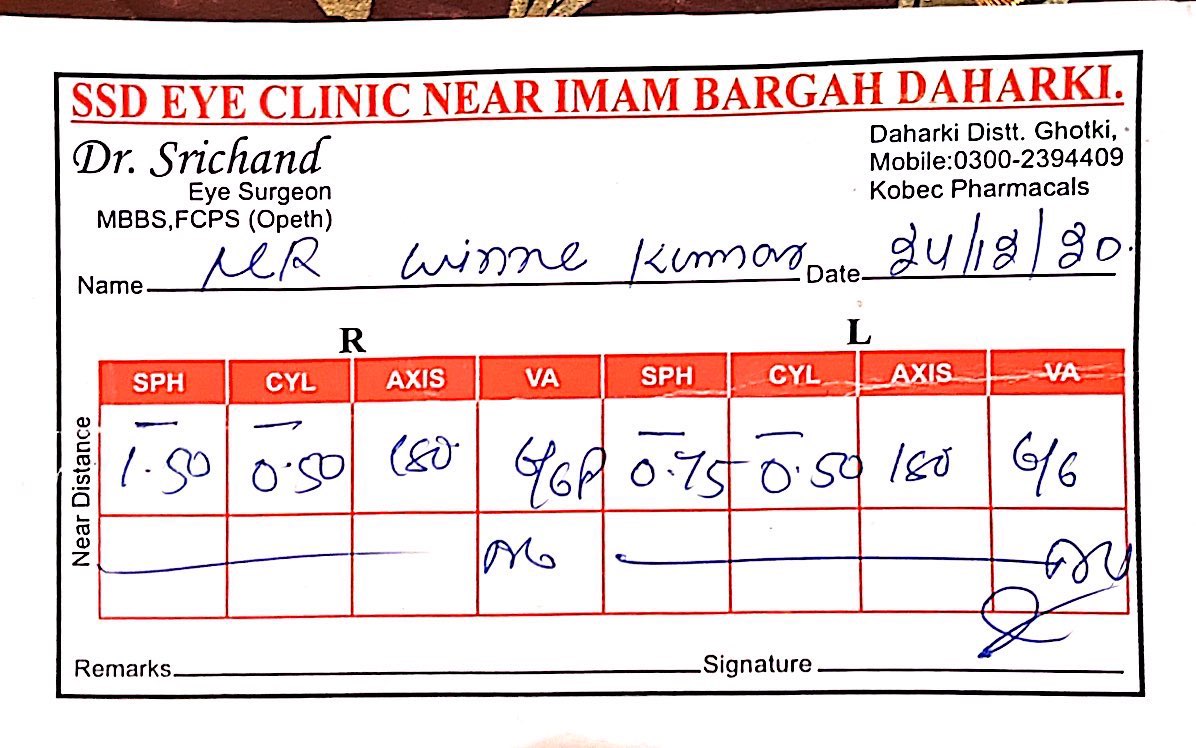 SSD EYE CLINIC NEAR IMAM BARGAH DAHARKI.
Dr. Srichand
Eye Surgeon
MBBS,FCPS (Opeth)
Daharki Distt. Ghotki,
Mobile:0300-2394409
Kobec Pharmacals
Name MR Winne Kumar Date 24/12/20.
R L
SPH CYL AXIS VA SPH CYL AXIS VA
Near Distance
-1.50 -0.50 180 6/6P -0.75 -0.50 180 6/6
Remarks Signature